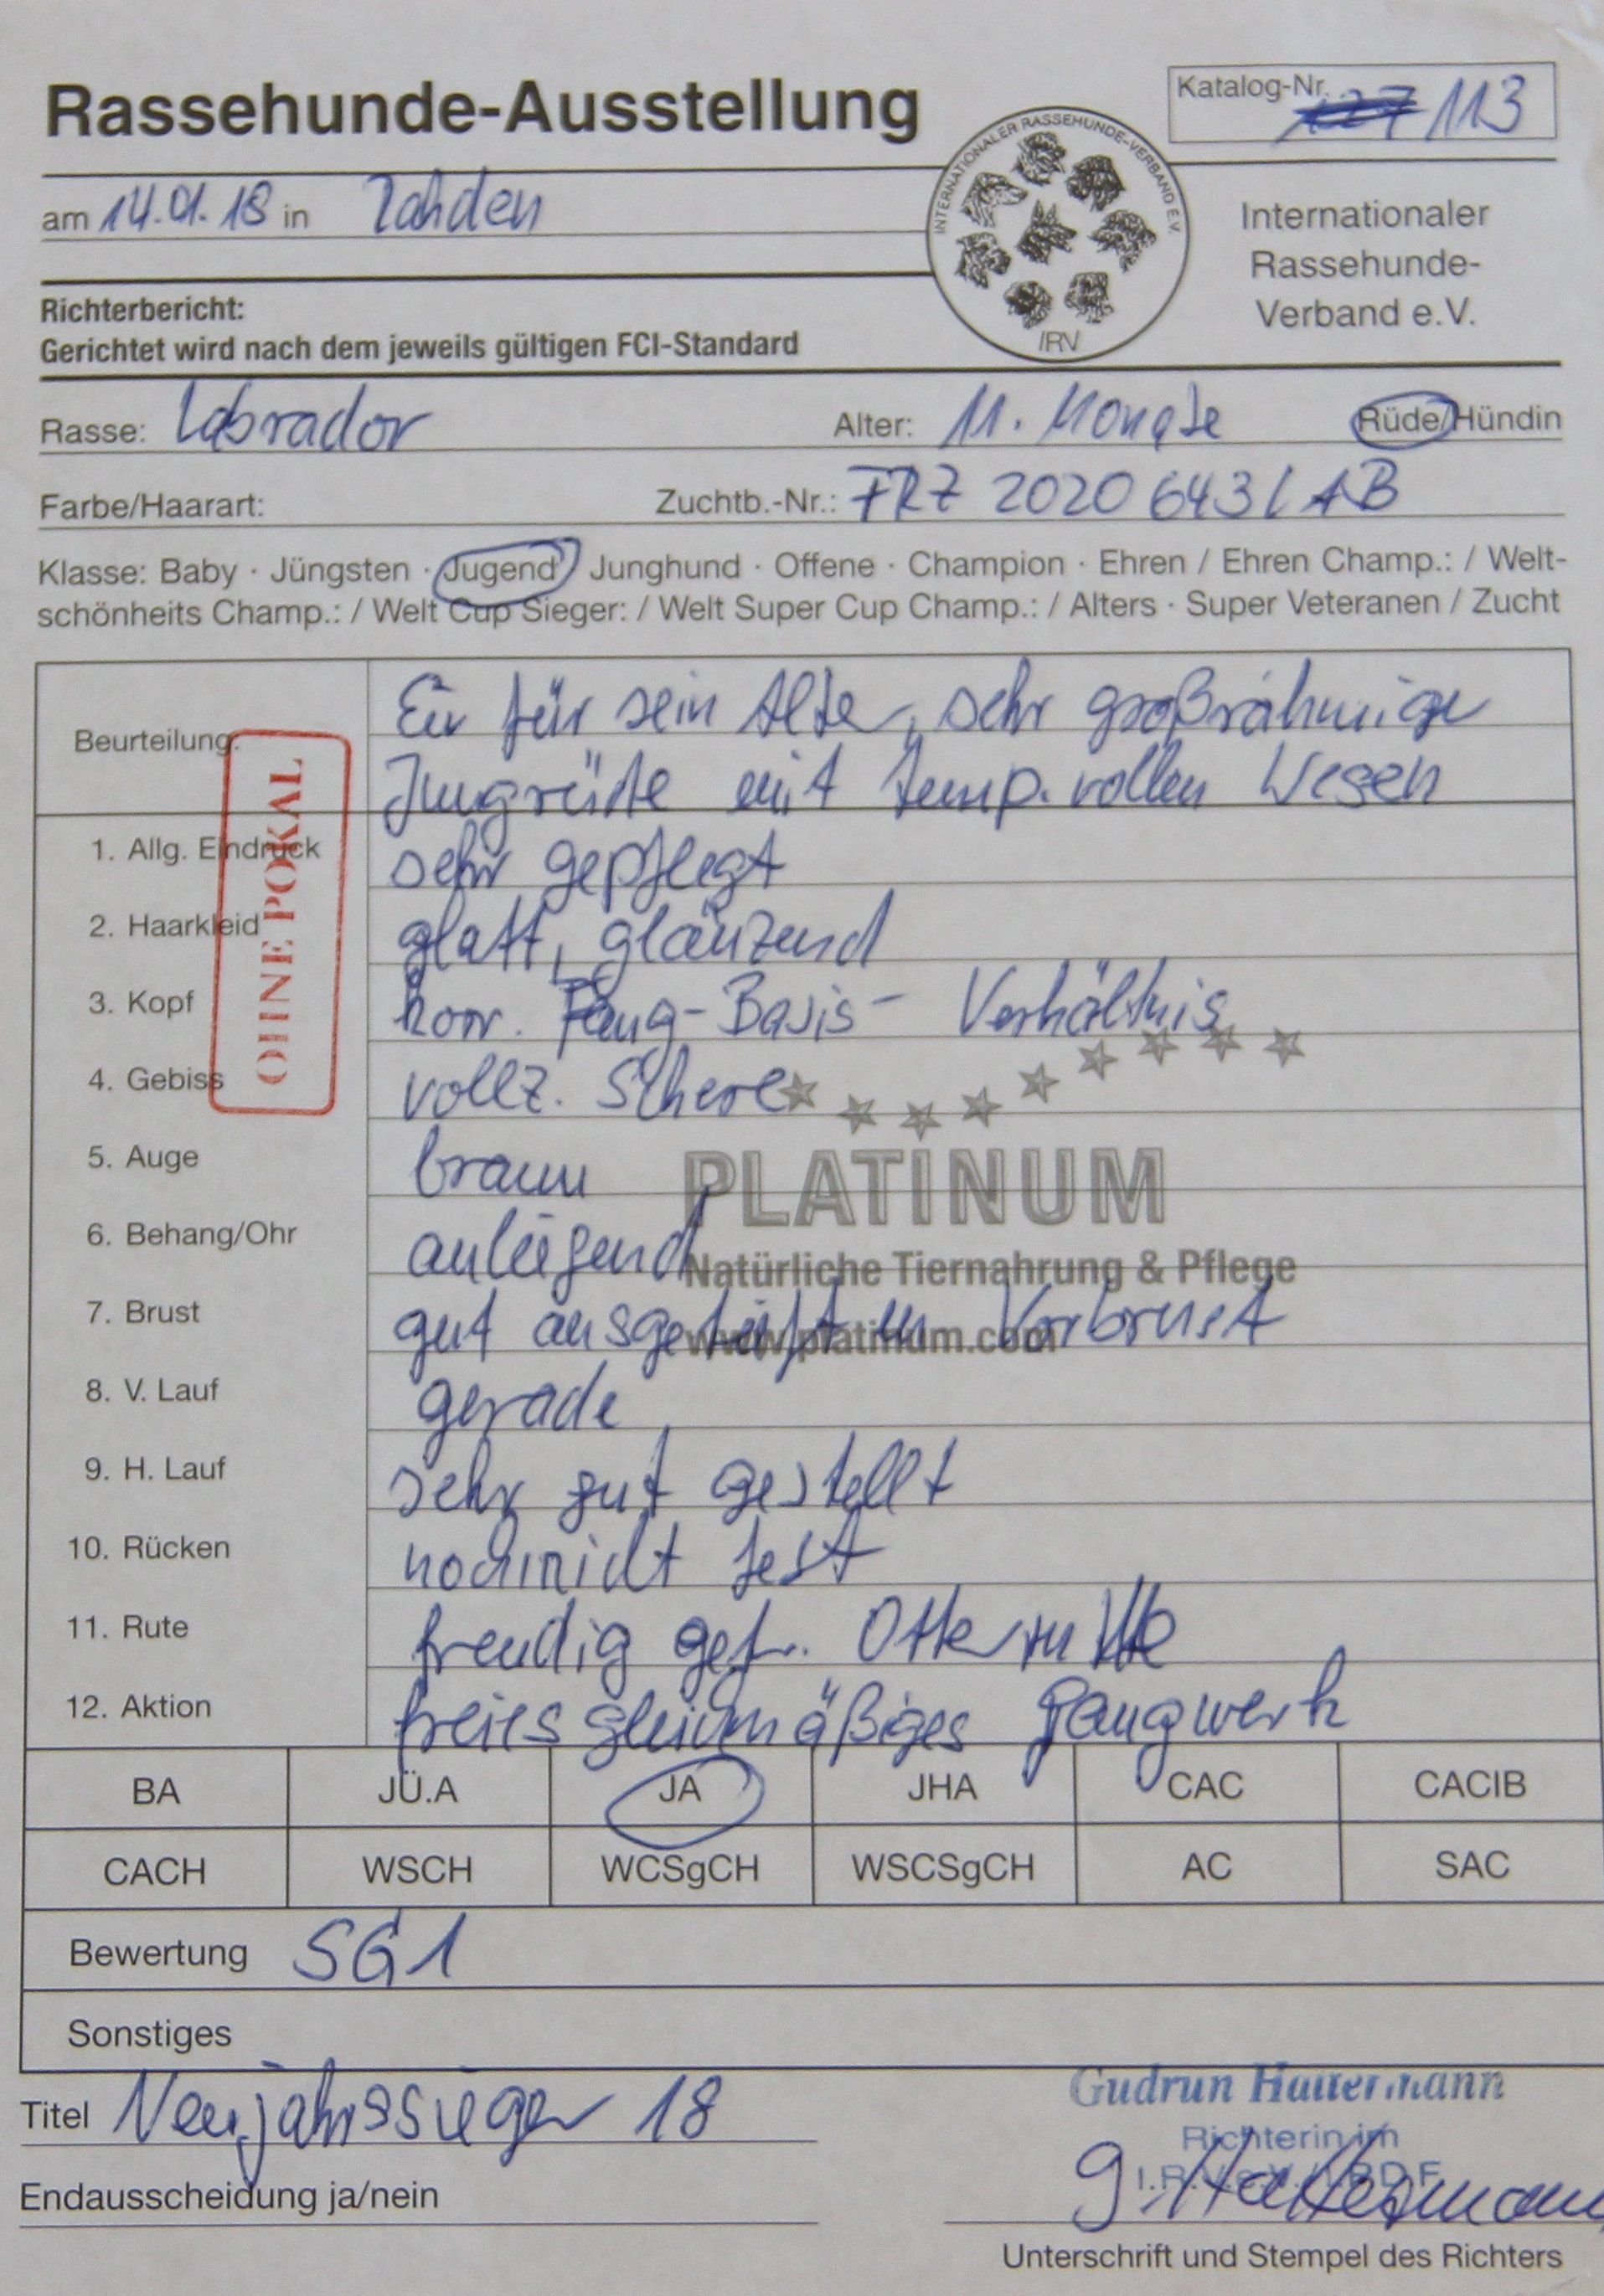 Rassehunde-Ausstellung
Katalog-Nr. 113
am 14.01.18 in Rahden
INTERNATIONALER RASSEHUNDE-VERBAND E.V.
IRV
Internationaler
Rassehunde-
Verband e.V.
Richterbericht:
Gerichtet wird nach dem jeweils gültigen FCI-Standard
Rasse: Labrador Alter: 11. Monate Rüde/Hündin
Farbe/Haarart: Zuchtb.-Nr.: FRZ 2020 643 LAB
Klasse: Baby · Jüngsten · Jugend · Junghund · Offene · Champion · Ehren / Ehren Champ.: / Welt-
schönheits Champ.: / Welt Cup Sieger: / Welt Super Cup Champ.: / Alters · Super Veteranen / Zucht
Beurteilung: Ein für sein Alter, sehr großrahmiger
Jungrüde mit temp.vollen Wesen
OHNE POKAL
1. Allg. Eindruck sehr gepflegt
2. Haarkleid glatt, glänzend
3. Kopf korr. Fang-Basis- Verhältnis
4. Gebiss vollz. Schere
5. Auge braun
PLATINUM
6. Behang/Ohr anliegend
Natürliche Tiernahrung & Pflege
7. Brust gut ausgereift in Vorbrust
www.platinum.com
8. V. Lauf gerade
9. H. Lauf sehr gut gestellt
10. Rücken noch nicht fest
11. Rute freudig getr. Otterrute
12. Aktion freies gleichmäßiges Gangwerk
BA JÜ.A JA JHA CAC CACIB
CACH WSCH WCSgCH WSCSgCH AC SAC
Bewertung SG1
Sonstiges
Titel Neujahrssieger 18
Gudrun Hattermann
Richterin im
G. Hattermann
Endausscheidung ja/nein
Unterschrift und Stempel des Richters